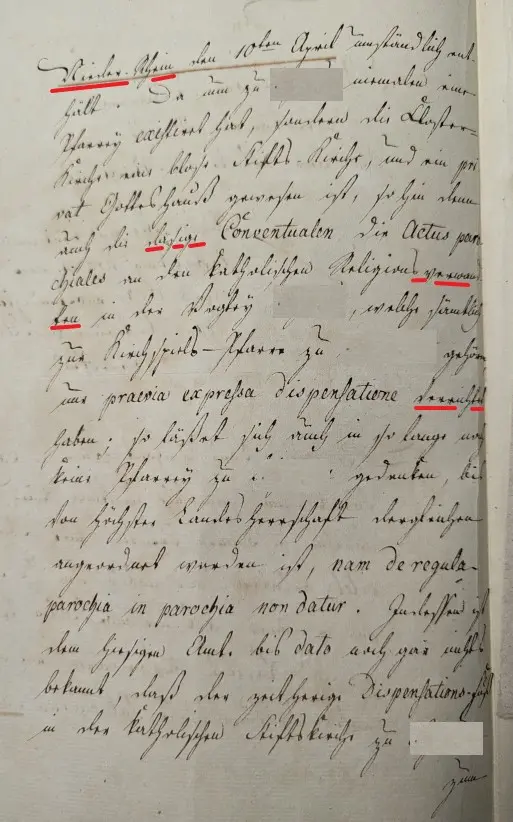 Nieder-Rhein den 10ten April umständlich ent-
hält. Da nun zu niemalen eine
Pfarrey existiret hat, sondern die Closter-
Kirche eine blose Stifts-Kirche, und ein pri
vat Gotteshauß gewesen ist, so hin denn
auch die dasige Conventualen die Actus paro
chiales an den katholischen Religions verwand
ten in der Vogtey , welche sämtlich
zur Kirchspiels-Pfarre zu gehören
nur praevia expressa dispensatione verrichtet
haben; so läßet sich auch in so lange noch
keine Pfarrey zu gedenken, bis
von höchster Landesherrschaft dergleichen
angeordnet worden ist, nam de regula
parochia in parochia non datur. Indessen ist
dem hiesigen Amt bis dato noch gar nichts
bekannt, daß der zeitherige Dispensations-
in der katholischen Stiftskirche zu
zum